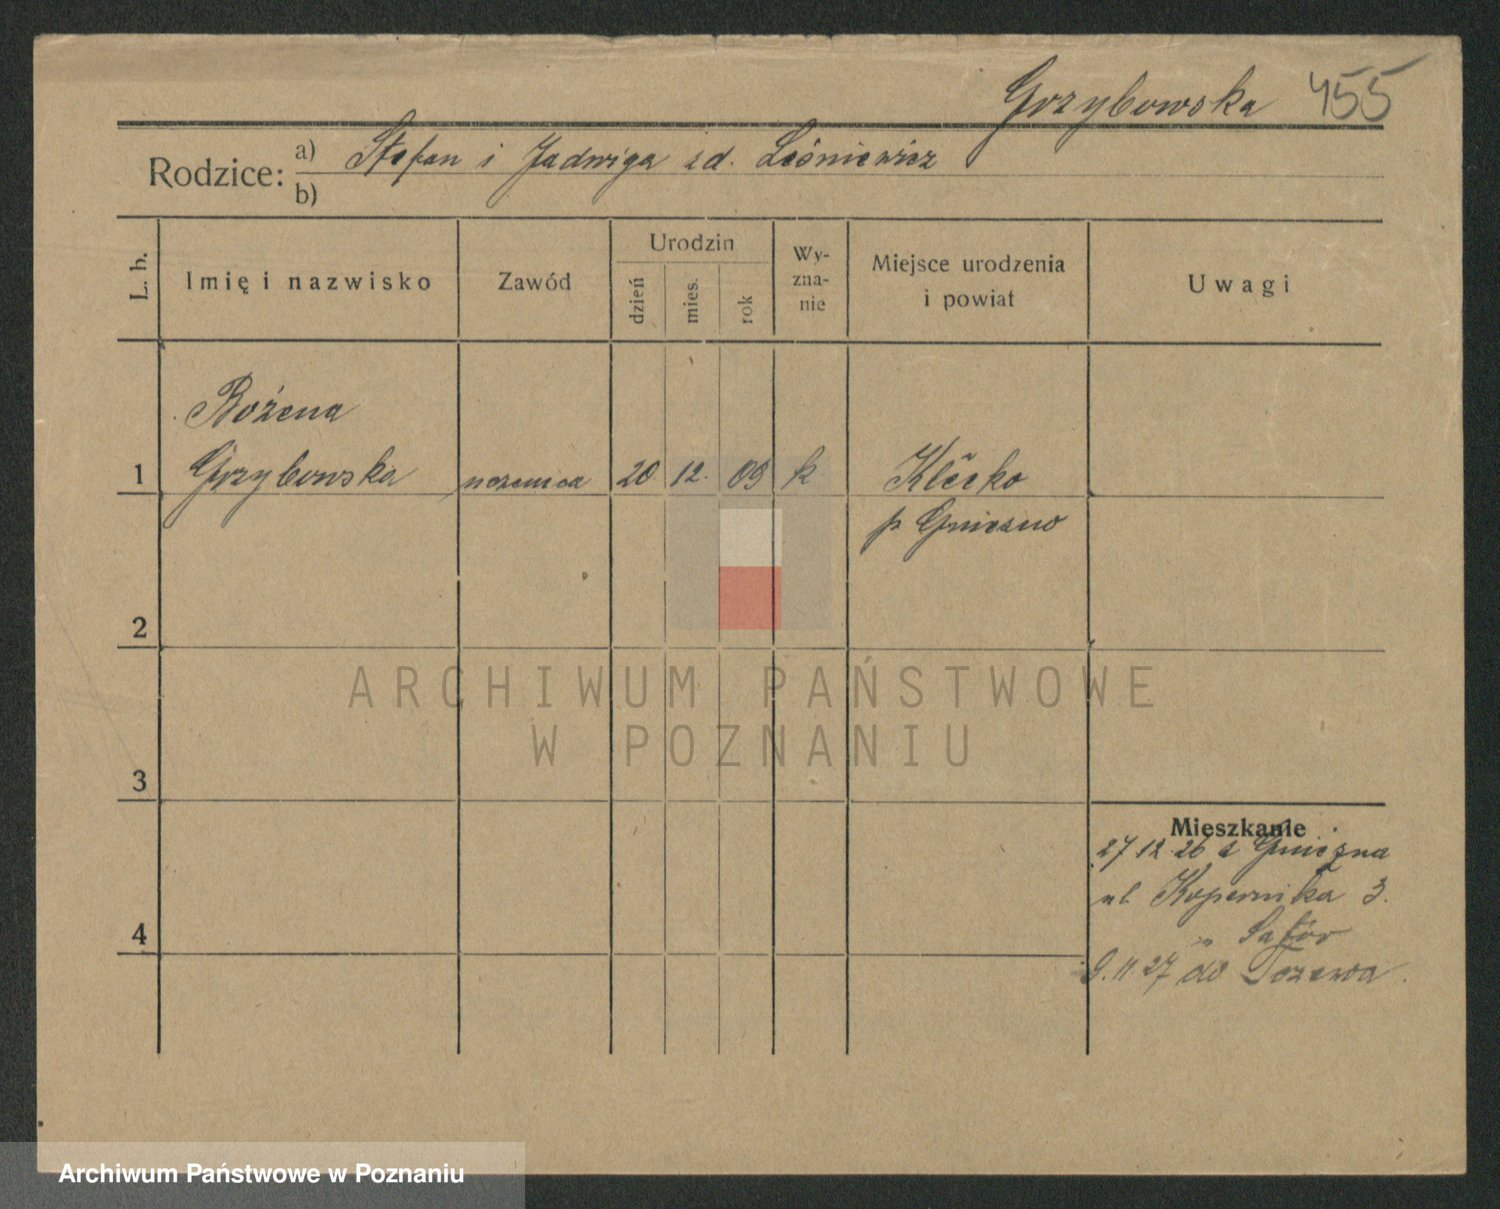 Grzybowska 455
Rodzice: a) Stefan i Jadwiga zd. Leśniewicz
b)
L. b.
Imię i nazwisko
Zawód
Urodzin
dzień
mies.
rok
Wy-
zna-
nie
Miejsce urodzenia
i powiat
Uwagi
Bożena
1 Grzybowska uczenica 20 12. 09 k Kłecko
p Gniezno
2
ARCHIWUM PAŃSTWOWE
W POZNANIU
3
Mieszkanie
27 12 26 z Gniezna
ul Kopernika 3.
4
9. 11 27 do Tczewa.
Archiwum Państwowe w Poznaniu